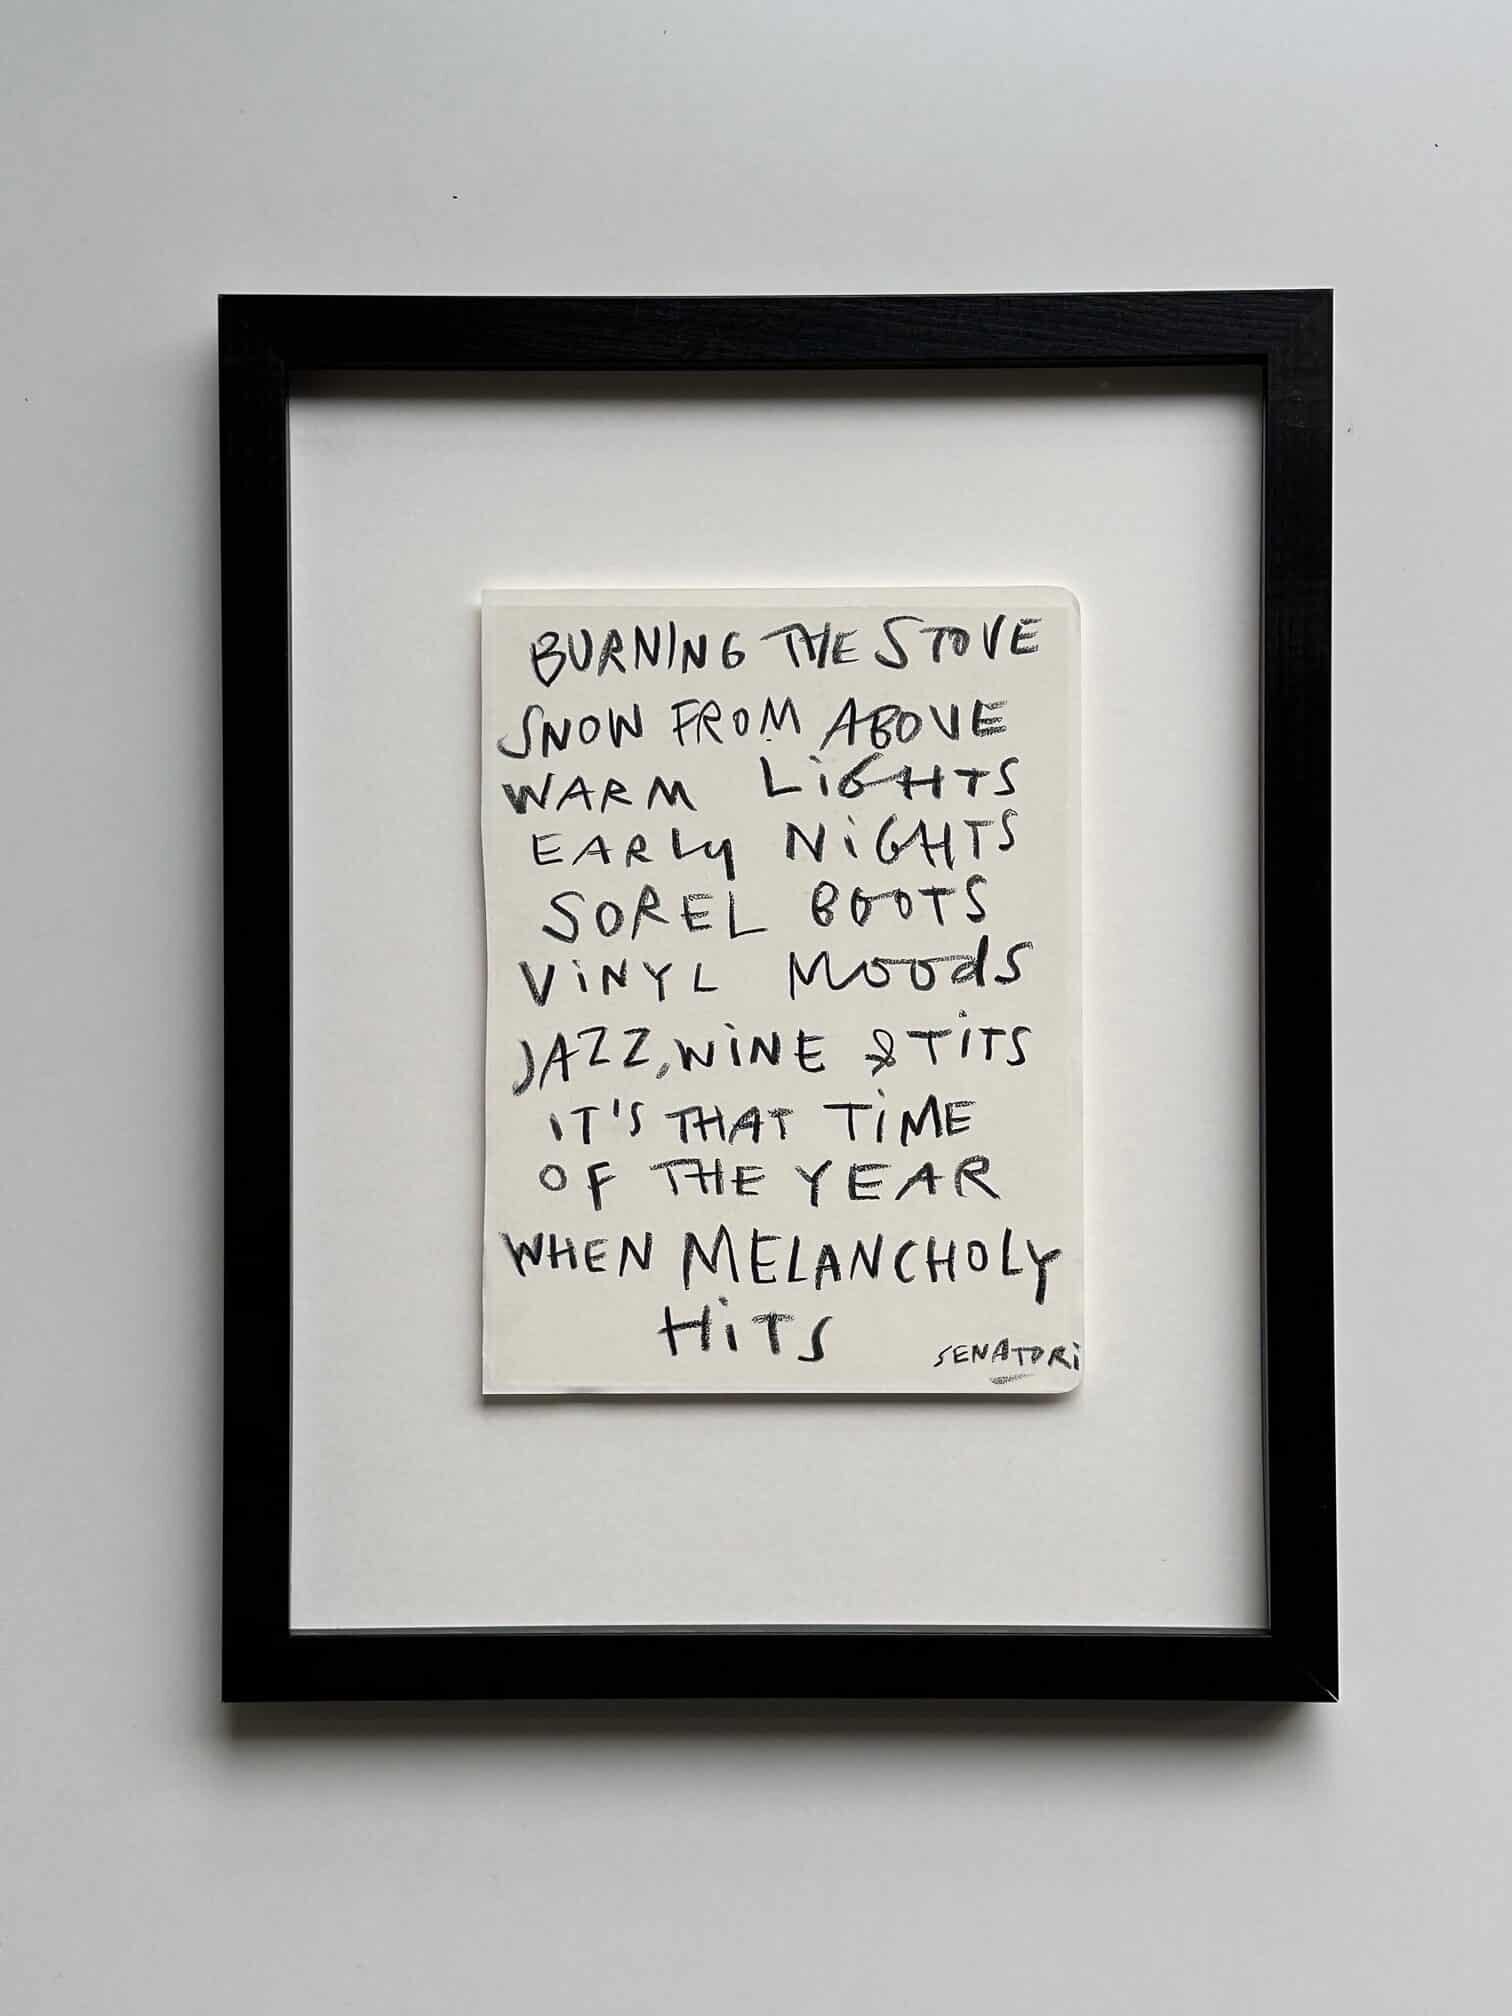 BURNING THE STOVE
SNOW FROM ABOVE
WARM LiGHTS
EARLy NiGHTS
SOREL BOOTS
ViNYL MOOdS
JAZZ, WiNE & TiTS
IT'S THAT TiME
OF THE YEAR
WHEN MELANCHOLY
HiTS
SENATORi